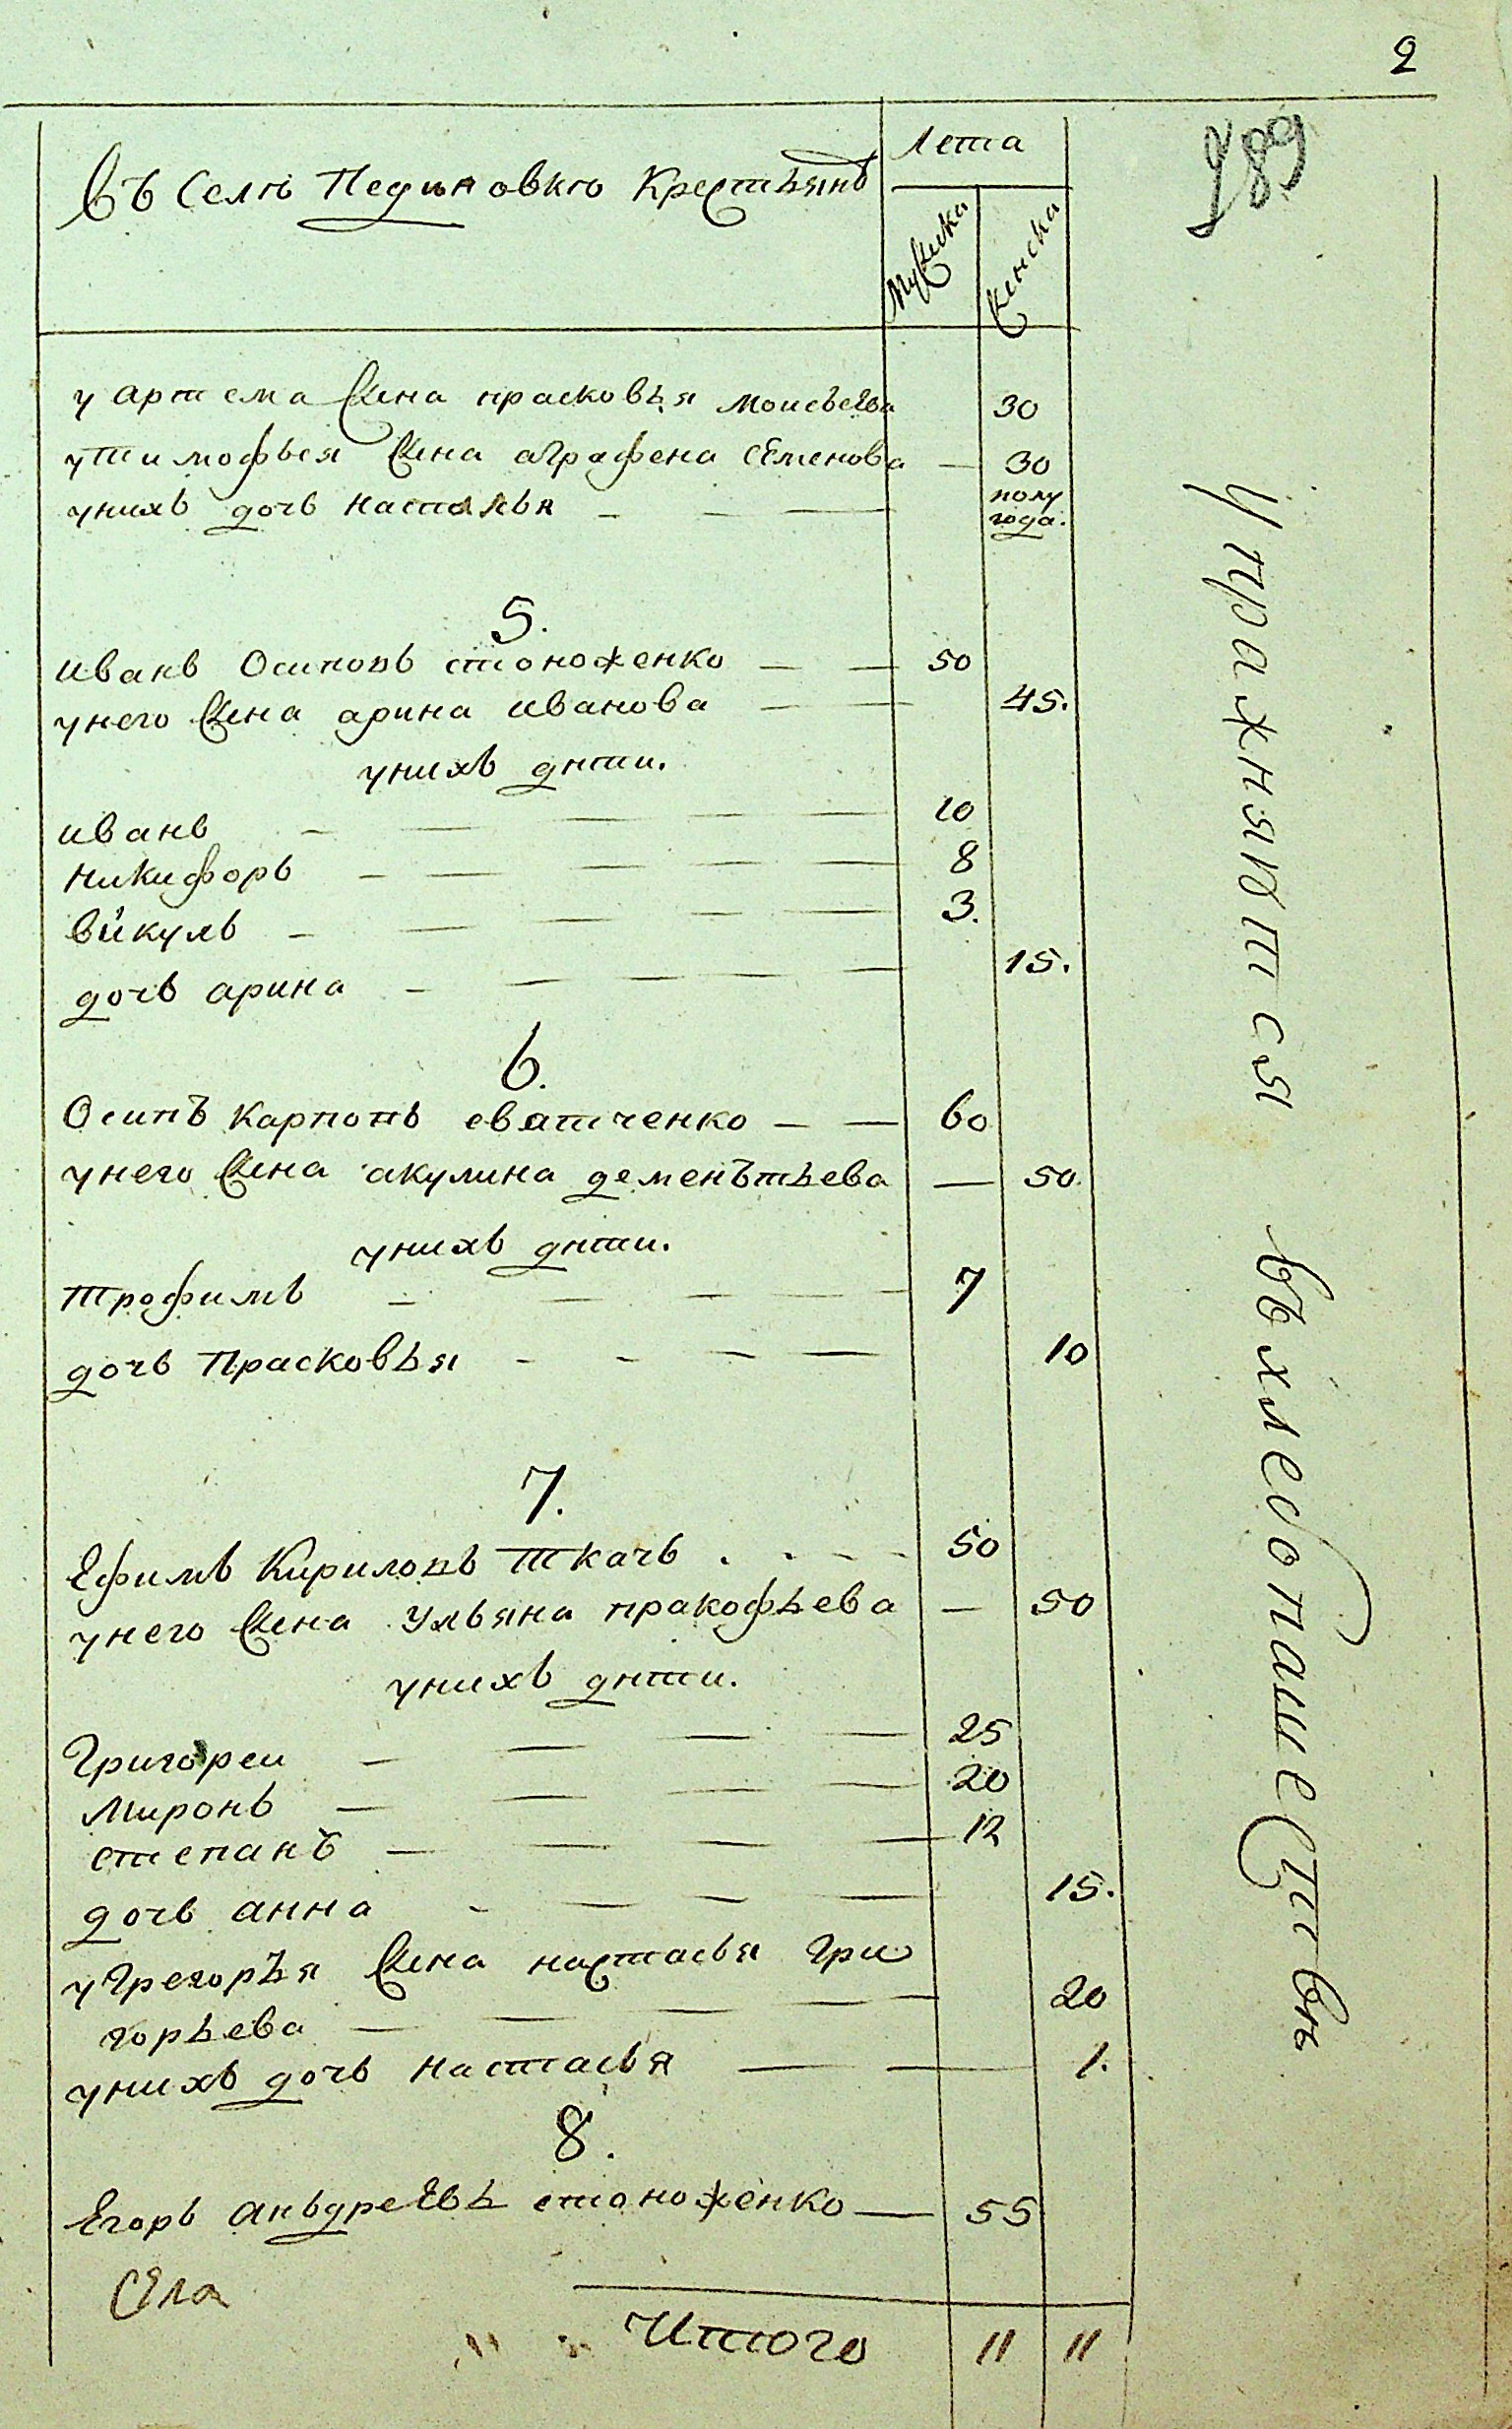 2
289
Въ Селѣ Пединовкѣ Крестьянъ
Лета
Мужска
Женска
у артема жена прасковья моисъева 30
у тимофъя жена аграфена семенова — 30
унихъ дочь насталья — — — полу
года.
5.
иванъ Осиповъ стоноженко — — 50
унего жена арина иванова — — 45.
унихъ дѣти.
иванъ — — — — — 10
никифоръ — — — — — 8
викулъ — — — — — 3.
дочь арина — — — — — 15.
6.
Осипъ Карповъ сватченко — — 60
унего жена акулина дементьева — 50.
унихъ дѣти.
трофимъ — — — — 7
дочь Прасковья — — — — 10
7.
Ефимъ Кириловъ Ткачъ . . - - - 50
унего жена Ульяна пракофьева — 50
унихъ дѣти.
Григореи — — — — 25
Миронъ — — — — 20
степанъ — — — — 12
дочь анна — — — — 15.
у Грегорья жена настасья Гри
горьева — — — — 20
унихъ дочь Настасья — — 1.
8.
Егоръ анъдреевъ стоноженко — 55
Села
Итого 11 11
Упражняются въ хлебопашестве